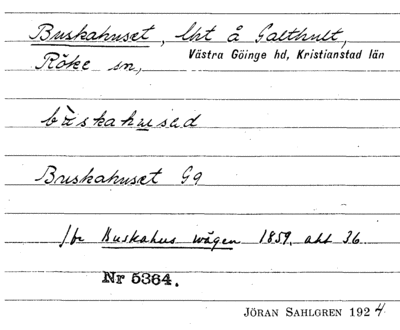 Buskahuset, lht å Galthult,
Röke sn, Västra Göinge hd, Kristianstad län
bùskahusəd
Buskahuset Gg
jfr Buskahus wägen 1859, akt 36
Nr 5364.
JÖRAN SAHLGREN 1924